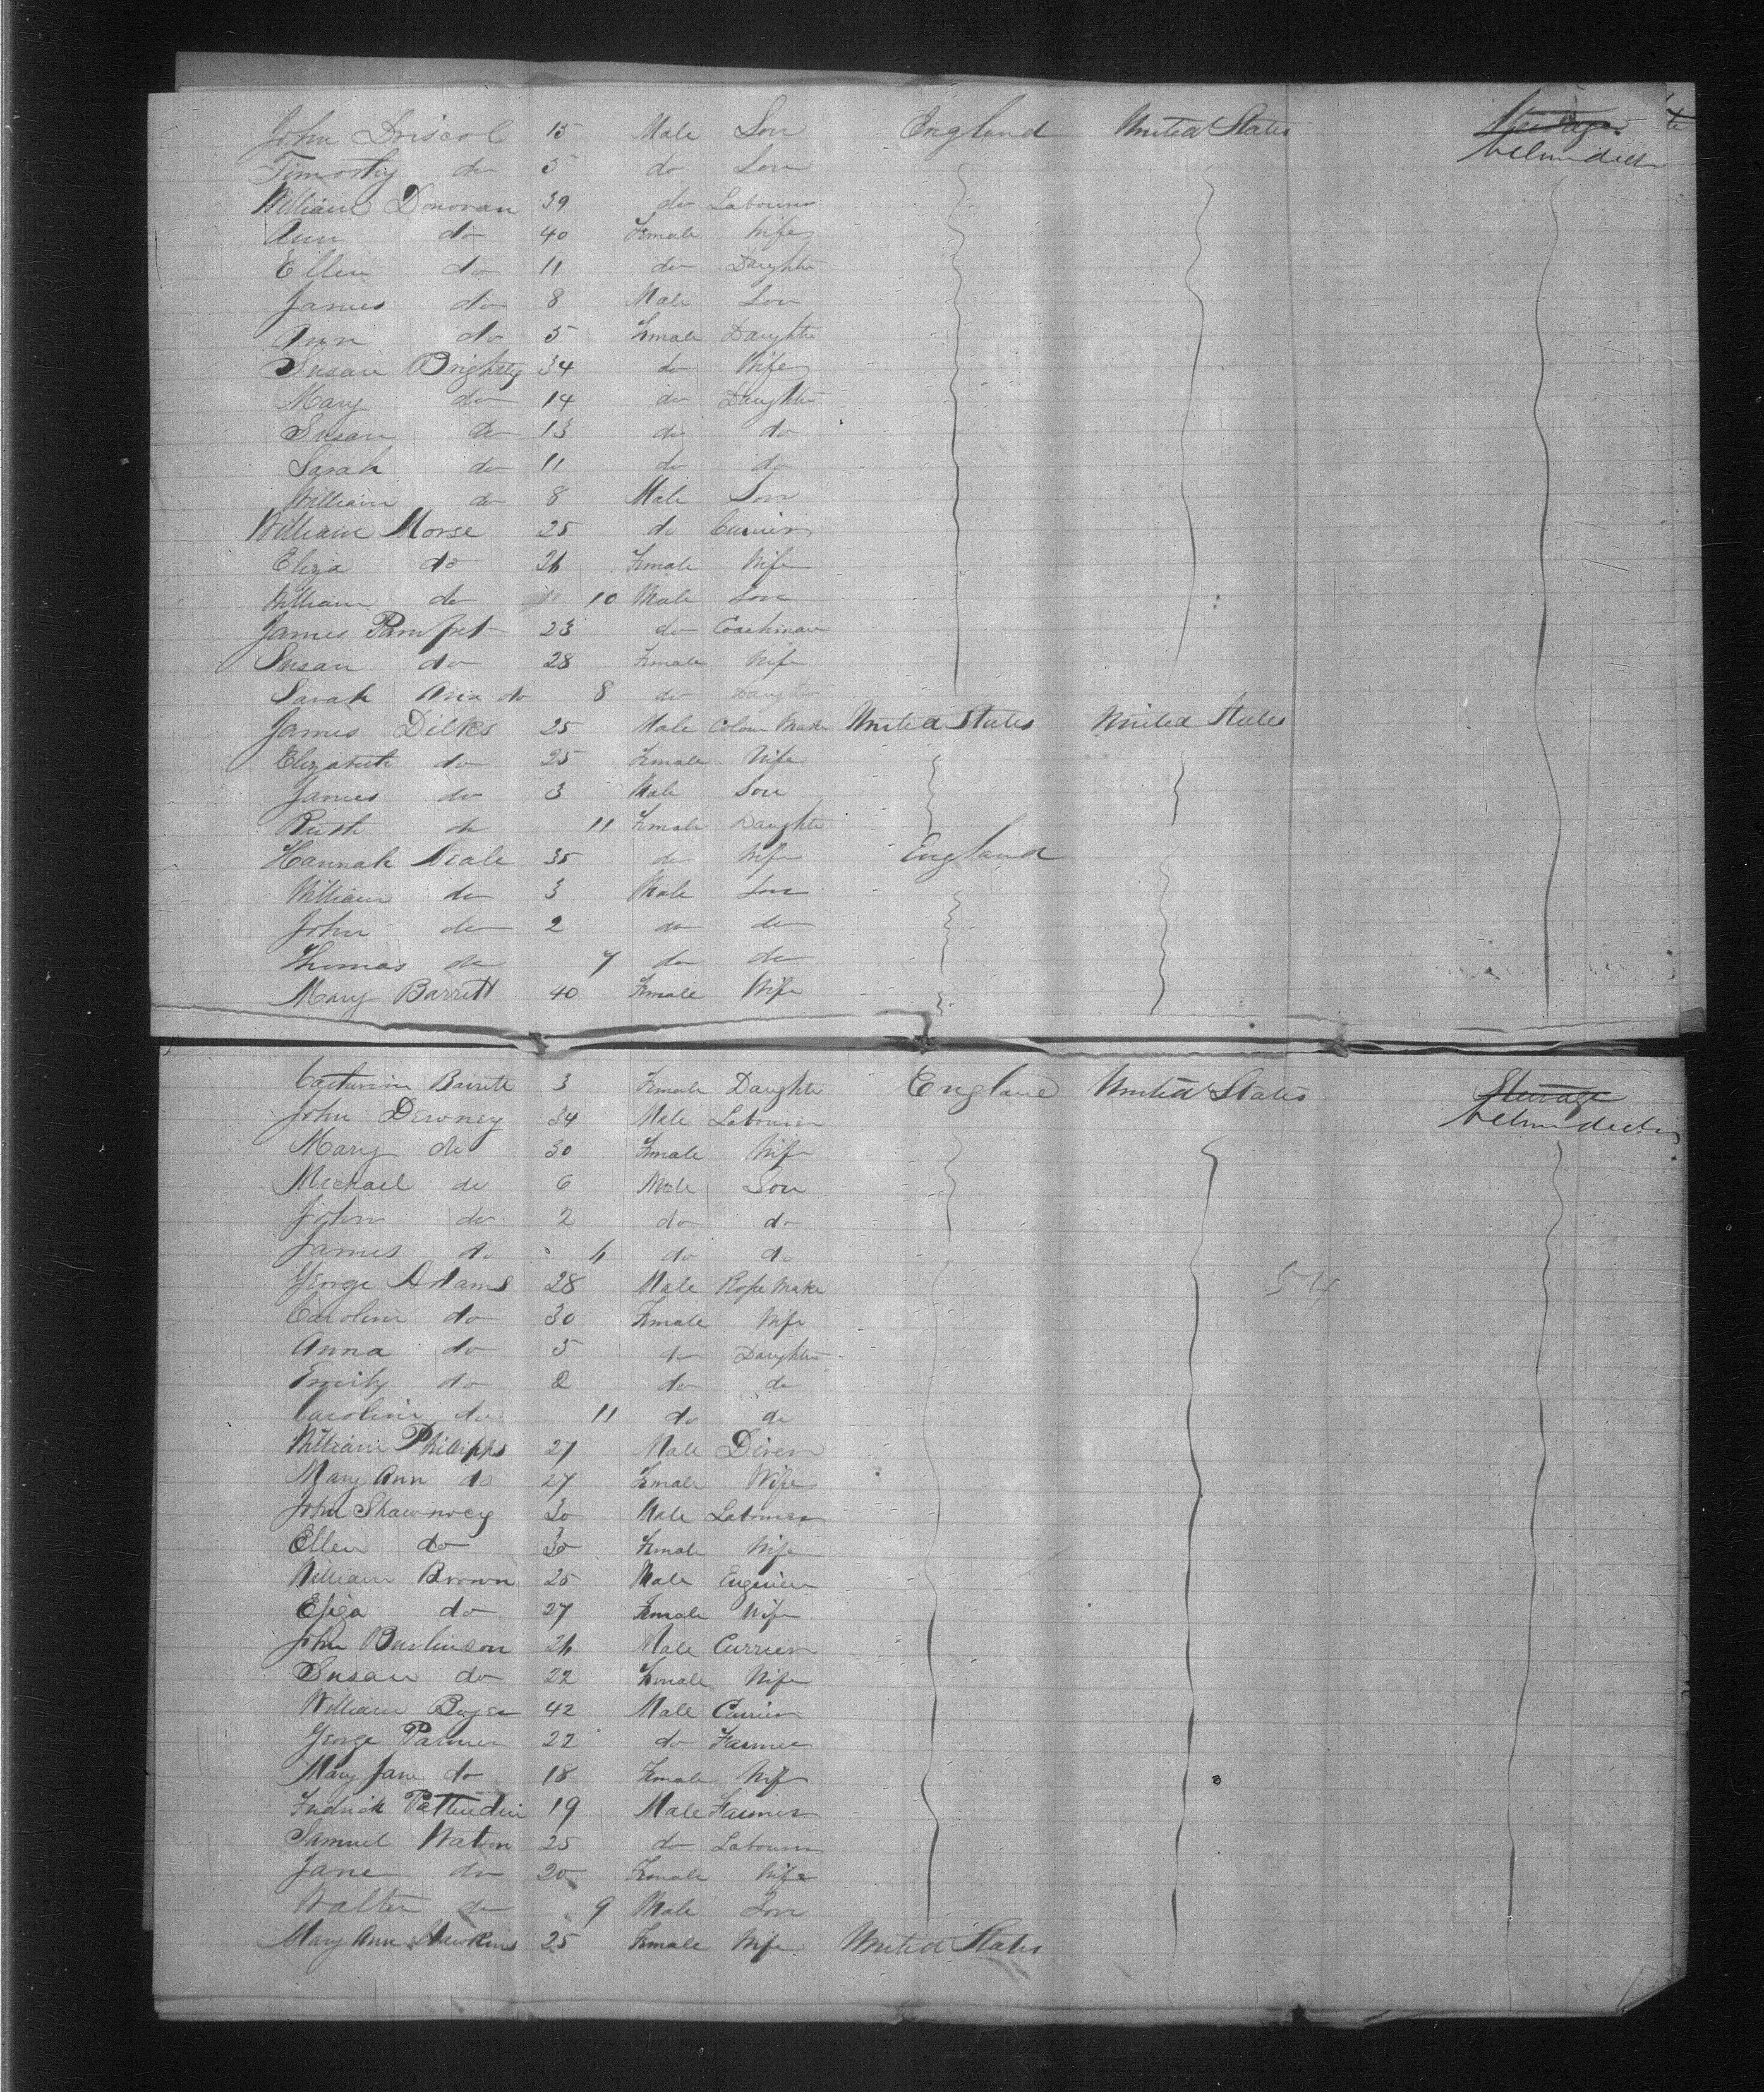 John Driscol 15 Male Son England United States Steerage
Timothy do 5 do Son between decks
William Donovan 39 do Labourer
Ann do 40 Female Wife
Ellen do 11 do Daughter
James do 8 Male Son
Ann do 5 Female Daughter
Susan Brightly 34 do Wife
Mary do 14 do Daughter
Susan do 13 do do
Sarah do 11 do do
William do 8 Male Son
William Morse 25 do Currier
Eliza do 24 Female Wife
William do 10 Male Son
James Pamfret 23 do Coachman
Susan do 28 Female Wife
Sarah Ann do 8 do Daughter
James Dilks 25 Male Colour Maker United States United States
Elizabeth do 25 Female Wife
James do 3 Male Son
Ruth do 11 Female Daughter
Hannah Neale 35 do Wife England
William do 3 Male Son
John do 2 do do
Thomas do 7 do do
Mary Barrett 40 Female Wife
Catherine Barrett 3 Female Daughter England United States Steerage
John Downey 34 Male Labourer between decks
Mary do 30 Female Wife
Michael do 6 Male Son
John do 2 do do
James do 4 do do
George Adams 28 Male Rope Maker 54
Caroline do 30 Female Wife
Anna do 5 do Daughter
Emily do 2 do do
Caroline do 11 do do
William Phillipps 27 Male
Mary Ann do 27 Female Wife
John 30 Male Labourer
Ellen do 30 Female Wife
William Brown 25 Male Engineer
Eliza do 27 Female Wife
John Burlinson 24 Male Currier
Susan do 22 Female Wife
William 42 Male Currier
George Parmer 22 do Farmer
Mary Jane do 18 Female Wife
Fredrick Pattenden 19 Male Farmer
Samuel Watson 25 do Labourer
Jane do 20 Female Wife
Walter do 9 Male Son
Mary Ann Hawkins 25 Female Wife United States